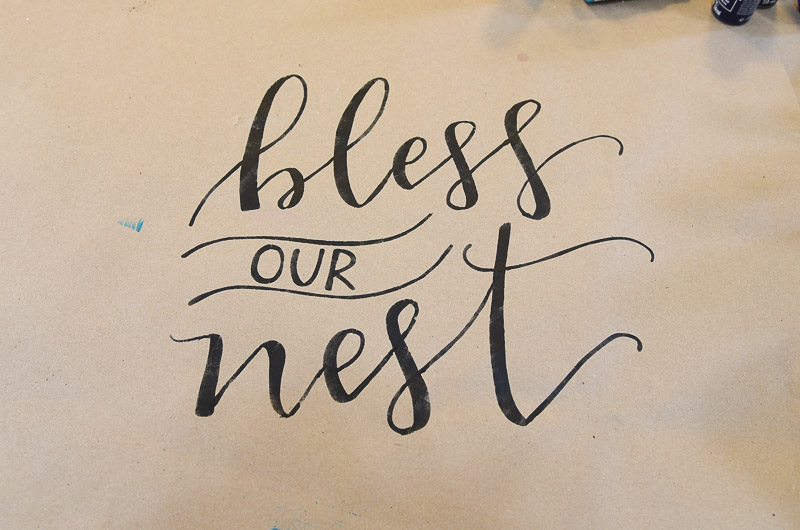 bless
OUR
nest